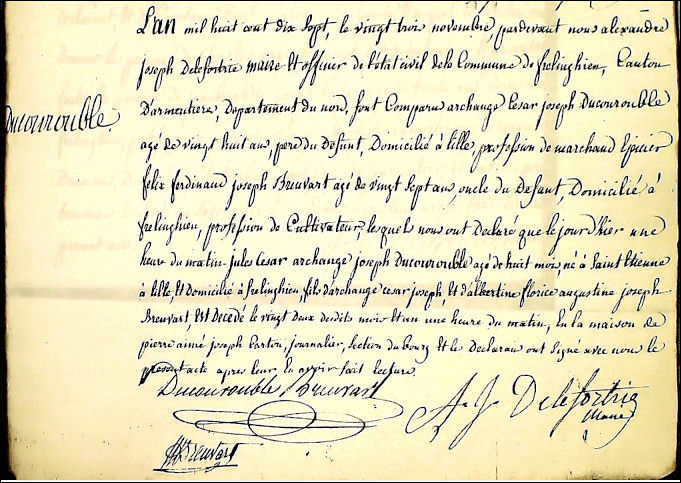 L'an mil huit cent dix sept, le vingt trois novembre, pardevant nous alexandre
joseph Delefortrie maire Et officier de l'état civil de la Commune de frelinghien, Canton
Ducourouble.
D'armentiere, Departement du nord, sont Comparus archange Cesar joseph Ducourouble
agé de vingt huit ans, pere du Defunt, Domicilié à lille, profession de marchand Epicier
felix ferdinand joseph Breuvart agé de vingt sept ans, oncle du Defunt, Domicilié à
frelinghien, profession de Cultivateur, lesquels nous ont Declaré que le jourd'hier une
heure du matin jules Cesar archange joseph Ducourouble agé de huit mois, né à Saint Etienne
à lille, Et Domicilié à frelinghien, fils d'archange cesar joseph, Et d'albertine florice augustine joseph
Breuvart, Est Decedé le vingt deux desdits mois Et an une heure du matin, En la maison de
pierre aimé joseph Carton, journalier, section du bourg Et les Declarans ont Signé avec nous le
present acte apres leur En avoir fait lecture.
Ducourouble Breuvart
A. J. Delefortrie
Maire
Breuvart